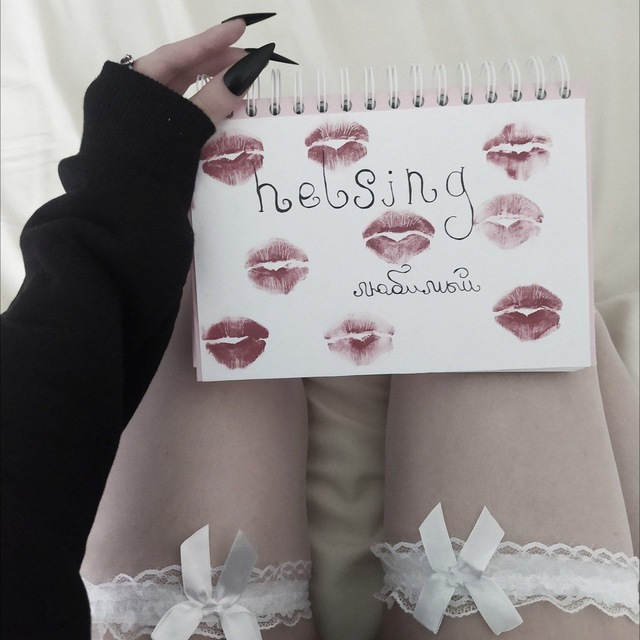 helsing
любимый